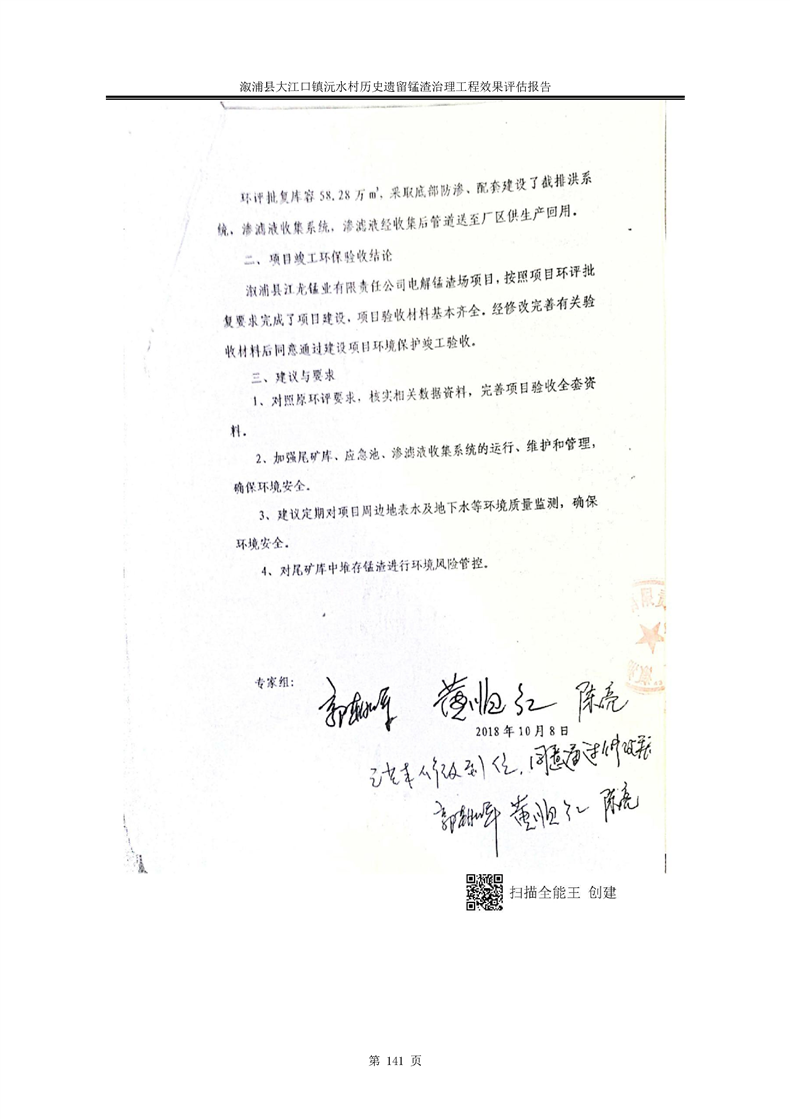 溆浦县大江口镇沅水村历史遗留锰渣治理工程效果评估报告
环评批复库容 58.28 万 m³，采取底部防渗、配套建设了截排洪系
统、渗滤液收集系统，渗滤液经收集后管道送至厂区供生产回用。
二、项目竣工环保验收结论
溆浦县江龙锰业有限责任公司电解锰渣场项目，按照项目环评批
复要求完成了项目建设，项目验收材料基本齐全。经修改完善有关验
收材料后同意通过建设项目环境保护竣工验收。
三、建议与要求
1、对照原环评要求，核实相关数据资料，完善项目验收全套资
料。
2、加强尾矿库、应急池、渗滤液收集系统的运行、维护和管理，
确保环境安全。
3、建议定期对项目周边地表水及地下水等环境质量监测，确保
环境安全。
4、对尾矿库中堆存锰渣进行环境风险管控。
专家组：
陈亮
2018 年 10 月 8 日
修改到位，同意通过修改
陈亮
扫描全能王 创建
第 141 页